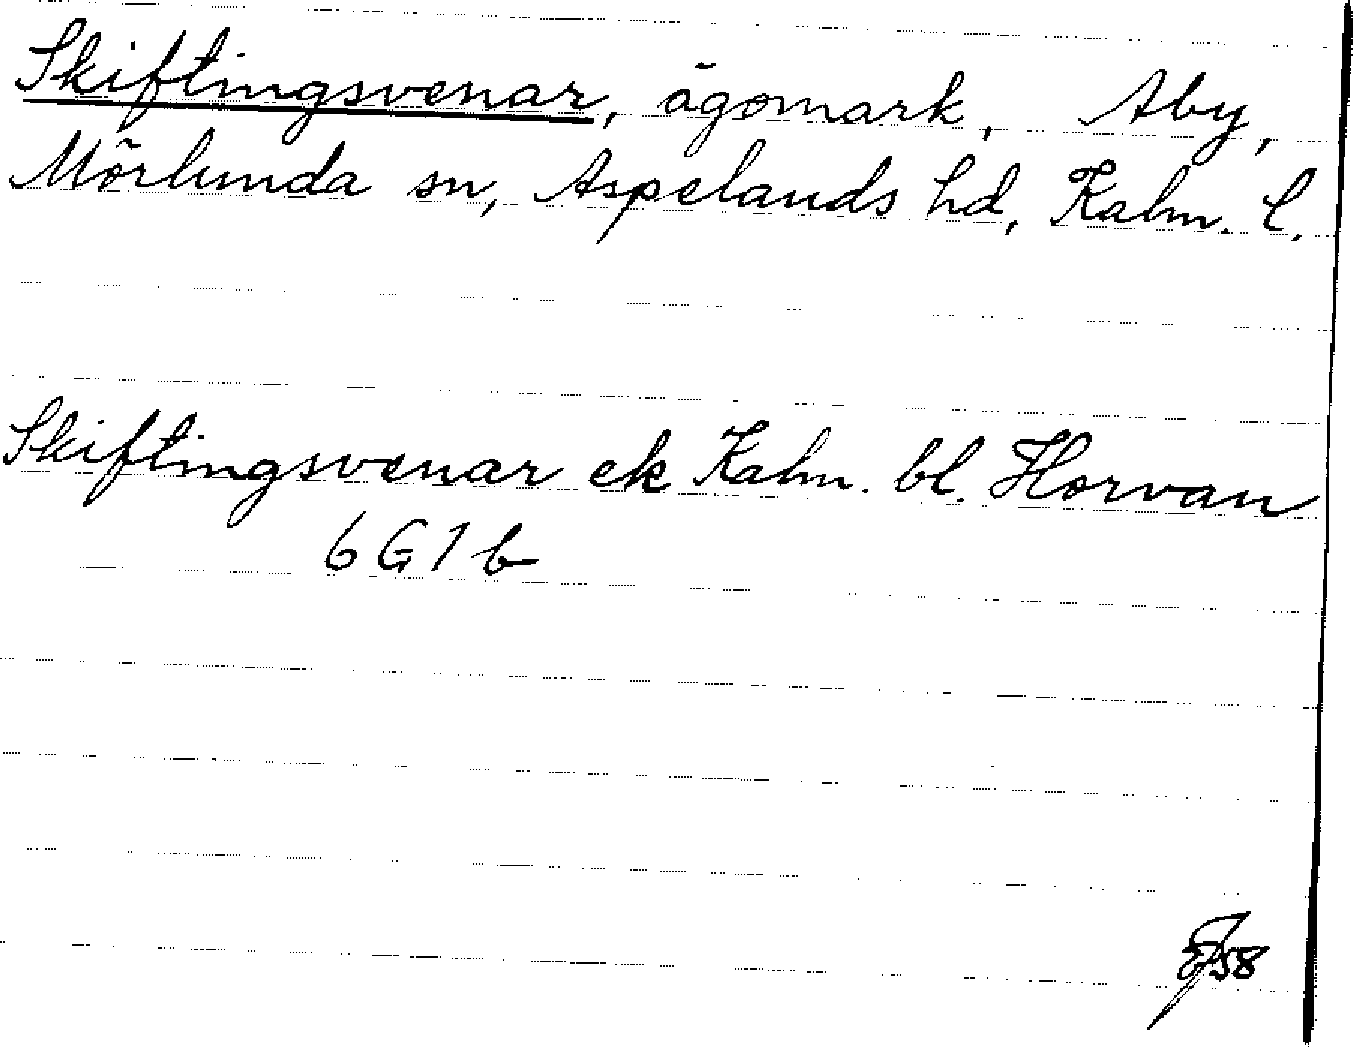 Skiftingsvenar, ägomark, Åby,
Mörlunda sn, Aspelands hd, Kalm. l.
Skiftingsvenar ek Kalm. bl. Horvan
6 G 1 b
58